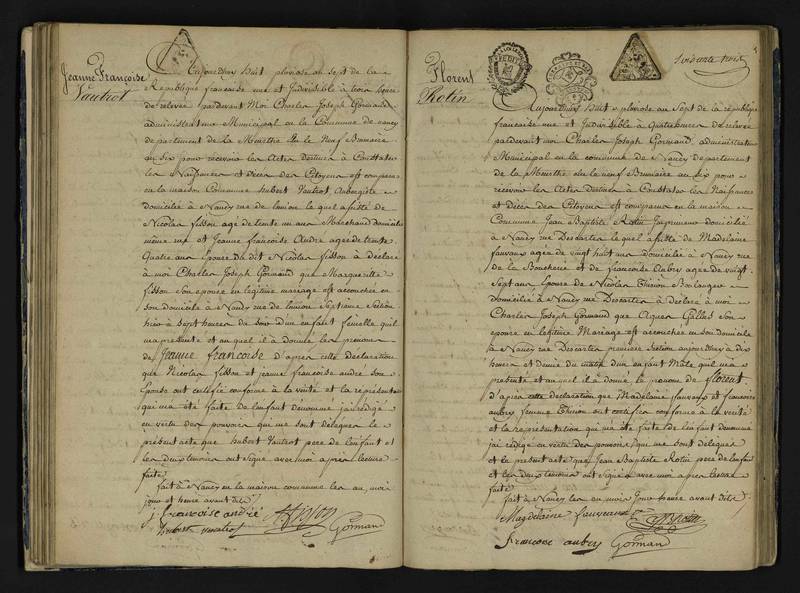 Jeanne Françoise
Vautrot
Aujourdhuy huit pluviose an sept de la
République française une et Indivisible à trois heures
de relevée pardevant Moi Charles Joseph Gormand
administrateur Municipal en la Commune de nancy
departement de la Meurthe élu le Neuf Brumaire
an six pour recevoir les Actes destinés à Constater
les Naissances et Décès des Citoyens est comparu
en la maison Commune hubert Vautrot Aubergiste
domicilié à Nancy rue de lunion le quel assisté de
Nicolas fisson agé de trente un ans Marchand domicilié
même rue et Jeanne françoise André agée de trente
Quatre ans épouse du dit Nicolas fisson à déclaré
à moi Charles Joseph Gormand que Marguerite
fisson son épouse en legitime mariage est accouchée en
son domicile à Nancy rue de lunion Septieme Section
hier à Sept heures du soir d'un enfant femelle quil
ma présenté et au quel il à donné les prenoms
de jeanne françoise d'après cette déclaration
que Nicolas fisson et jeanne françoise andré son
Epouse ont certifié conforme à la vérité et la représentation
qui ma été faite de lenfant dénommé jai rédigé
en vertu des pouvoirs qui me sont délégués le
présent acte que hubert Vautrot pere de lenfant et
les deux témoins ont signé avec moi après lecture
faite
fait à Nancy en la maison commune les an, moi
jour et heure avant dits
j. françoise andré
hubert vautrot
N fisson
Gormand
Florent
Rotin
Soixante trois
Aujourdhuy huit pluviose an Sept de la république
française une et Indivisible à Quatre heures de relevée
pardevant moi Charles Joseph Gormand administrateur
Municipal en la commune de Nancy departement
de la Meurthe élu le neuf Brumaire an Six pour
recevoir les Actes destinés à Constater les Naissances
et Décès des Citoyens est comparu en la maison
Commune Jean Baptiste Rotin domicilié
à Nancy rue Descartes le quel assisté de Madelaine
fauvaux agée de vingt huit ans domiciliée à Nancy rue
de la Boucherie et de françoise Aubry agée de vingt
Sept ans Epouse de Nicolas Thirion Boulanger
domiciliée à Nancy rue Descartes à déclaré à moi
Charles Joseph Gormand que Agnes Gallas Son
épouse en legitime Mariage est accouchée en son domicile
à Nancy rue Descartes premiere Section aujourdhuy à dix
heures et demie du matin d'un enfant Mâle quil ma
présenté et au quel il à donné le prenom de florent
d'après cette déclaration que Madelaine fauvaux et françoise
aubry femme Thirion ont certifié conforme à la verité
et la représentation qui ma été faite de lenfant dénommé
jai rédigé en vertu des pouvoirs qui me sont délégués
le présent acte que Jean Baptiste Rotin pere de lenfant
et les deux témoins ont signé avec moi après lecture
faite
fait à Nancy les an mois jour heure avant dits
Magdelaine fauveaux
françoise aubry
Gormand